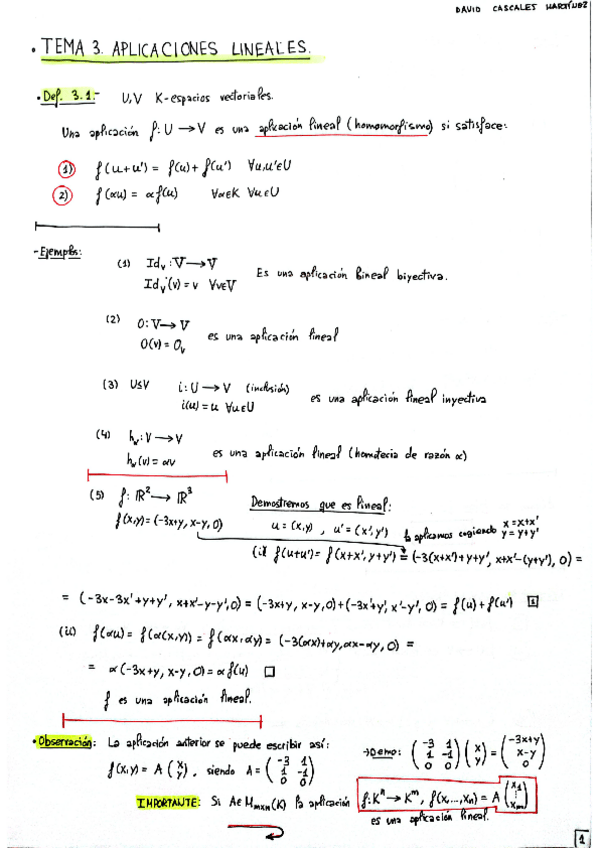 DAVID CASCALES MARTÍNEZ
• TEMA 3. APLICACIONES LINEALES.
• Def. 3.1:- U,V K-espacios vectoriales.
Una aplicación f: U → V es una aplicación lineal (homomorfismo) si satisface:
1) f(u+u') = f(u)+f(u') ∀u,u'∈U
2) f(αu) = αf(u) ∀α∈K ∀u∈U
- Ejemplos:
(1) Id_v : V → V
Id_v(v) = v ∀v∈V
Es una aplicación lineal biyectiva.
(2) O: V → V
O(v) = O_v
es una aplicación lineal
(3) U≤V i: U → V (inclusión)
i(u) = u ∀u∈U
es una aplicación lineal inyectiva
(4) h_α : V → V
h_α(v) = αv
es una aplicación lineal (homotecia de razón α)
(5) f: ℝ² → ℝ³
f(x,y) = (-3x+y, x-y, 0)
Demostremos que es lineal:
u = (x,y) , u' = (x',y')
la aplicamos cogiendo x = x+x' y = y+y'
(i) f(u+u') = f(x+x', y+y') = (-3(x+x')+y+y', x+x'-(y+y'), 0) =
= (-3x-3x'+y+y', x+x'-y-y', 0) = (-3x+y, x-y, 0)+(-3x'+y', x'-y', 0) = f(u)+f(u') □
(ii) f(αu) = f(α(x,y)) = f(αx, αy) = (-3(αx)+αy, αx-αy, 0) =
= α(-3x+y, x-y, 0) = αf(u) □
f es una aplicación lineal.
• Observación: La aplicación anterior se puede escribir así:
f(x,y) = A (x y), siendo A = (-3 1 1 -1 0 0)
→ Demo: (-3 1 1 -1 0 0) (x y) = (-3x+y x-y 0)
IMPORTANTE: Si A∈M_mxn(K) la aplicación f: Kⁿ → Kᵐ, f(x,...,xn) = A (x1 ⋮ xm)
es una aplicación lineal.
1